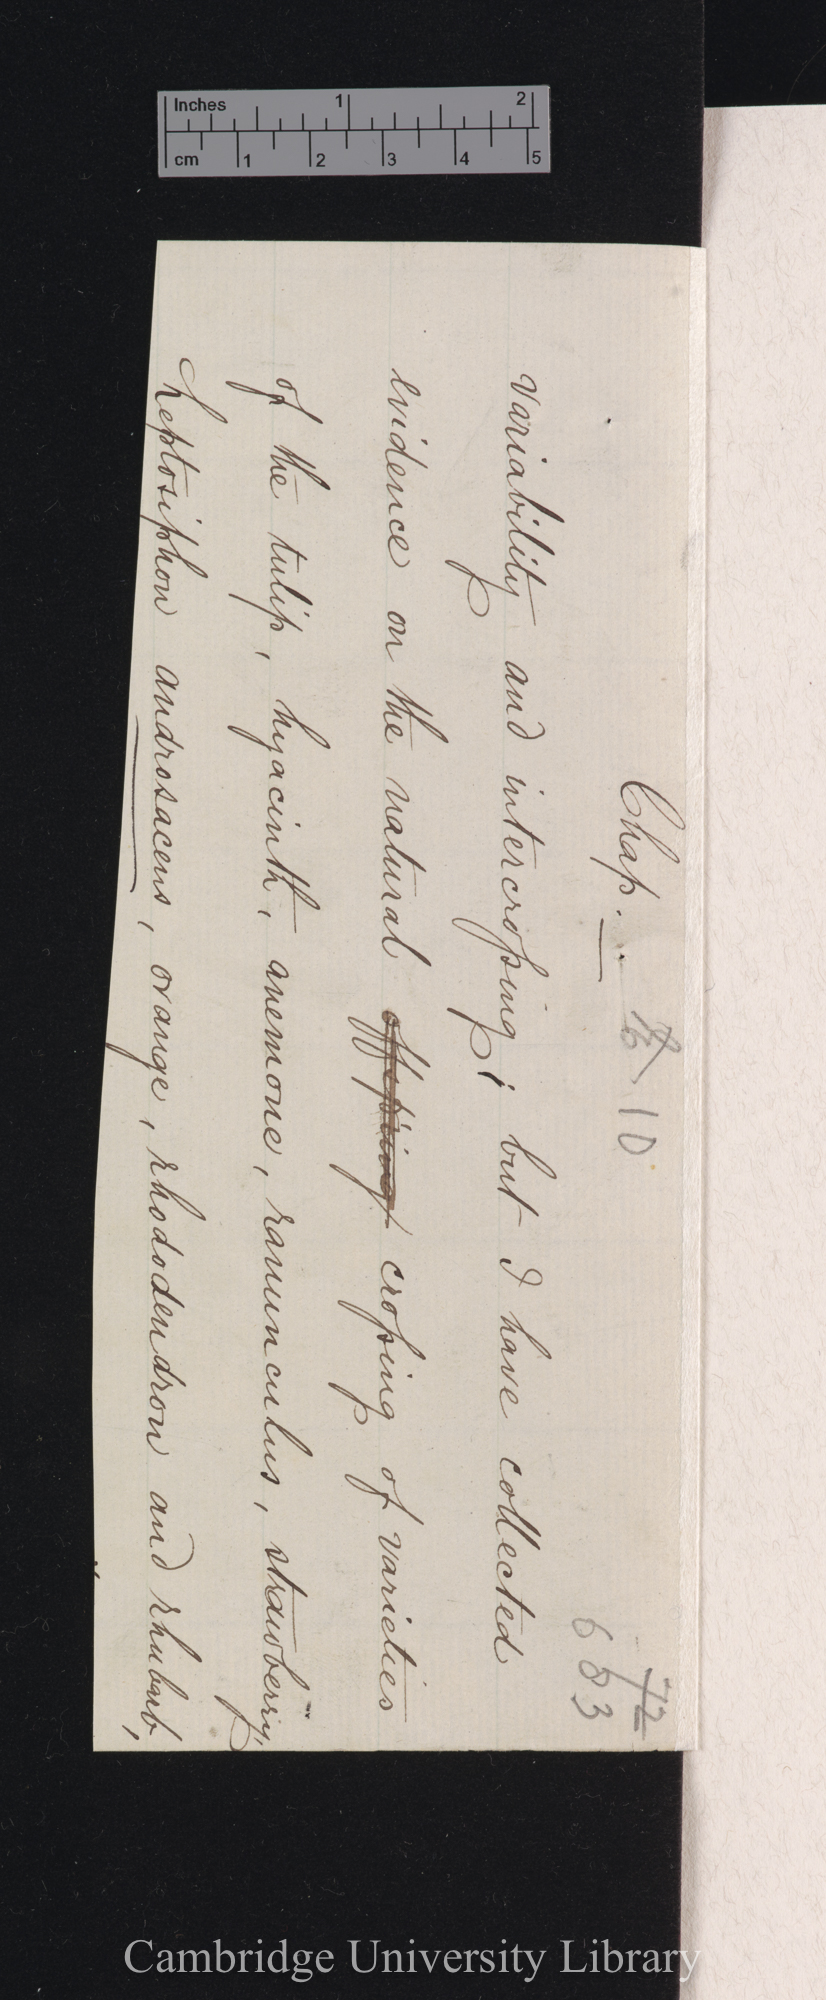 Inches 1 2
cm 1 2 3 4 5
Chap. 10
72
683
variability and intercrossing; but I have collected
evidence on the natural offspring crossing of varieties
of the tulip, hyacinth, anemone, ranunculus, strawberry,
Leptosiphon androsaceus, orange, rhododendron and rhubarb,
Cambridge University Library